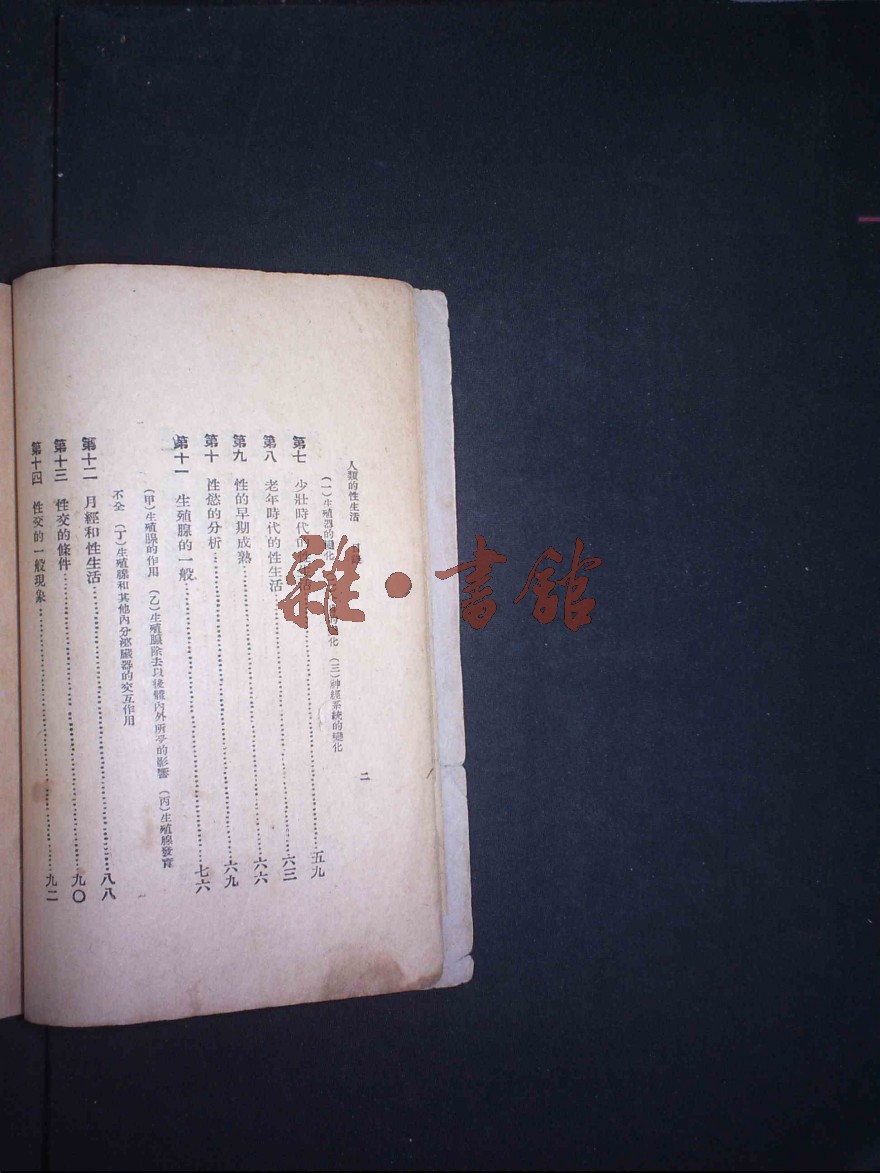 人類的性生活 目錄
二
(一)生殖器的變化 化 (三)神經系統的變化
第七 少壯時代的 五九
第八 老年時代的性生活 六三
第九 性的早期成熟 六六
第十 性慾的分析 六九
第十一 生殖腺的一般 七六
(甲)生殖腺的作用 (乙)生殖腺除去以後體內外所予的影響 (丙)生殖腺發育
不全 (丁)生殖腺和其他內分泌臟器的交互作用
第十二 月經和性生活 八八
第十三 性交的條件 九〇
第十四 性交的一般現象 九二
雜·書館